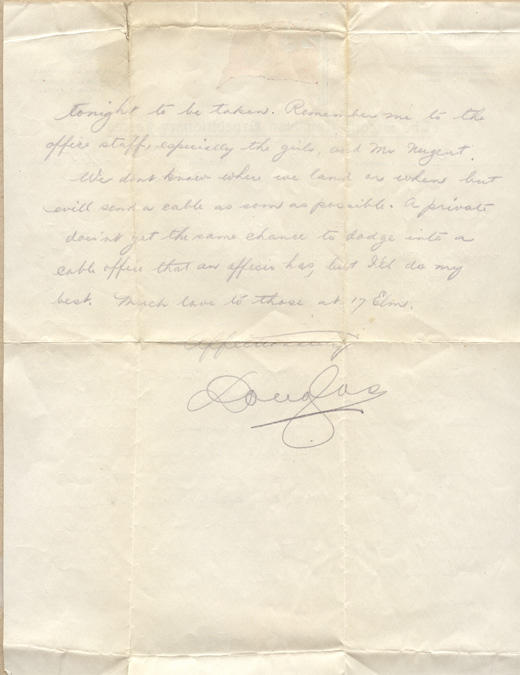 tonight to be taken. Remember me to the
office staff, especially the girls, and Mr Nugent.
We dont know where we land or when but
will send a cable as soon as possible. A private
doesnt get the same chance to dodge into a
cable office that an officer has, but I'll do my
best. Much love to those at 17 Elm.
Affectionately
Douglas